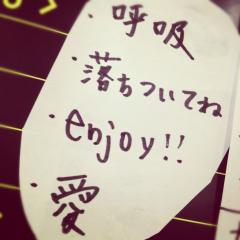 ・呼吸
・落ちついてね
・enjoy!!
・愛